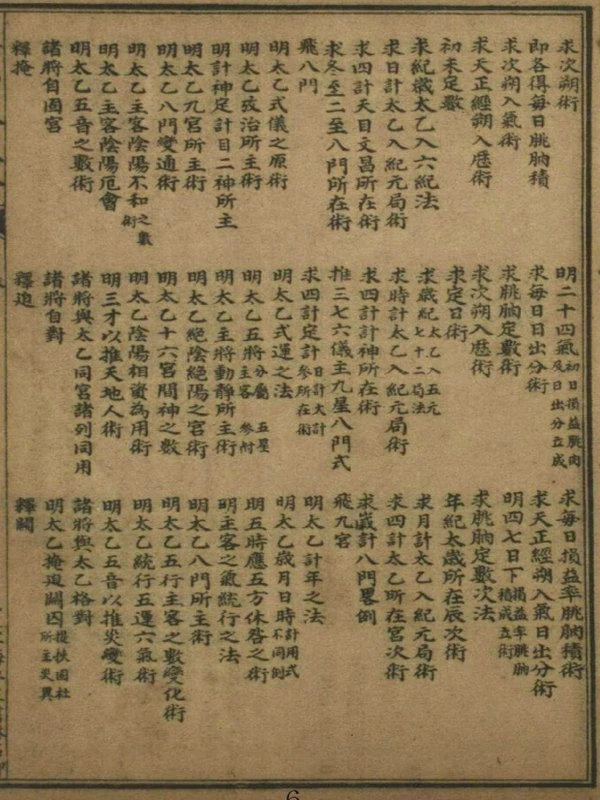 求次朔術
明二十四氣初日損益朓朒及日出分立成
求每日損益率朓朒積術
即各得每日朓朒積
求每日日出分術
求天正經朔入氣日出分術
求次朔入氣術
求朓朒定數術
明四七日下損益率朓朒積成立術
求天正經朔入厯術
求次朔入厯術
求朓朒定數次法
初末定數
求定日術
年紀太歲所在辰次術
求紀歲太乙入六紀法
求歲紀太乙入五元七十二局法
求月計太乙入紀元局術
求日計太乙入紀元局術
求時計太乙入紀元局術
求四計太乙所在宮次術
求四計天目文昌所在術
求四計計神所在術
求歲計八門畧例
求冬至二至八門所在術
推三七六儀主九星八門式
飛九宮
飛八門
求四計定計日計大計參所在術
明太乙計年之法
明太乙式儀之原術
明太乙式運之法
明太乙歲月日時計用式不同例
明太乙攷治所主術
明太乙五將分屬五星主客參附
明五時應五方休咎之術
明計神定計目二神所主
明太乙主將動靜所主術
明主客之氣統行之法
明太乙九宮所主術
明太乙絕陰絕陽之宮術
明太乙八門所主術
明太乙八門變通術
明太乙十六宮間神之數
明太乙五行主客之數變化術
明太乙主客陰陽不和之數術
明太乙陰陽相資為用術
明太乙統行五運六氣術
明太乙主客陰陽厄會
明三才以推天地人術
明太乙五音以推災變術
明太乙五音之數術
諸將與太乙同宮諸列同用
諸將與太乙格對
諸將自囚宮
諸將自對
明太乙掩迫關囚提挾固杜所主災異
釋掩
釋迫
釋關
6